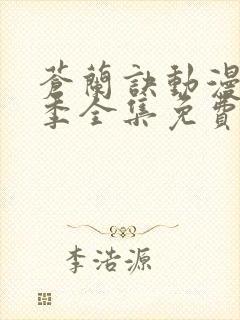 蒼蘭訣動漫
季全集免費
李浩源